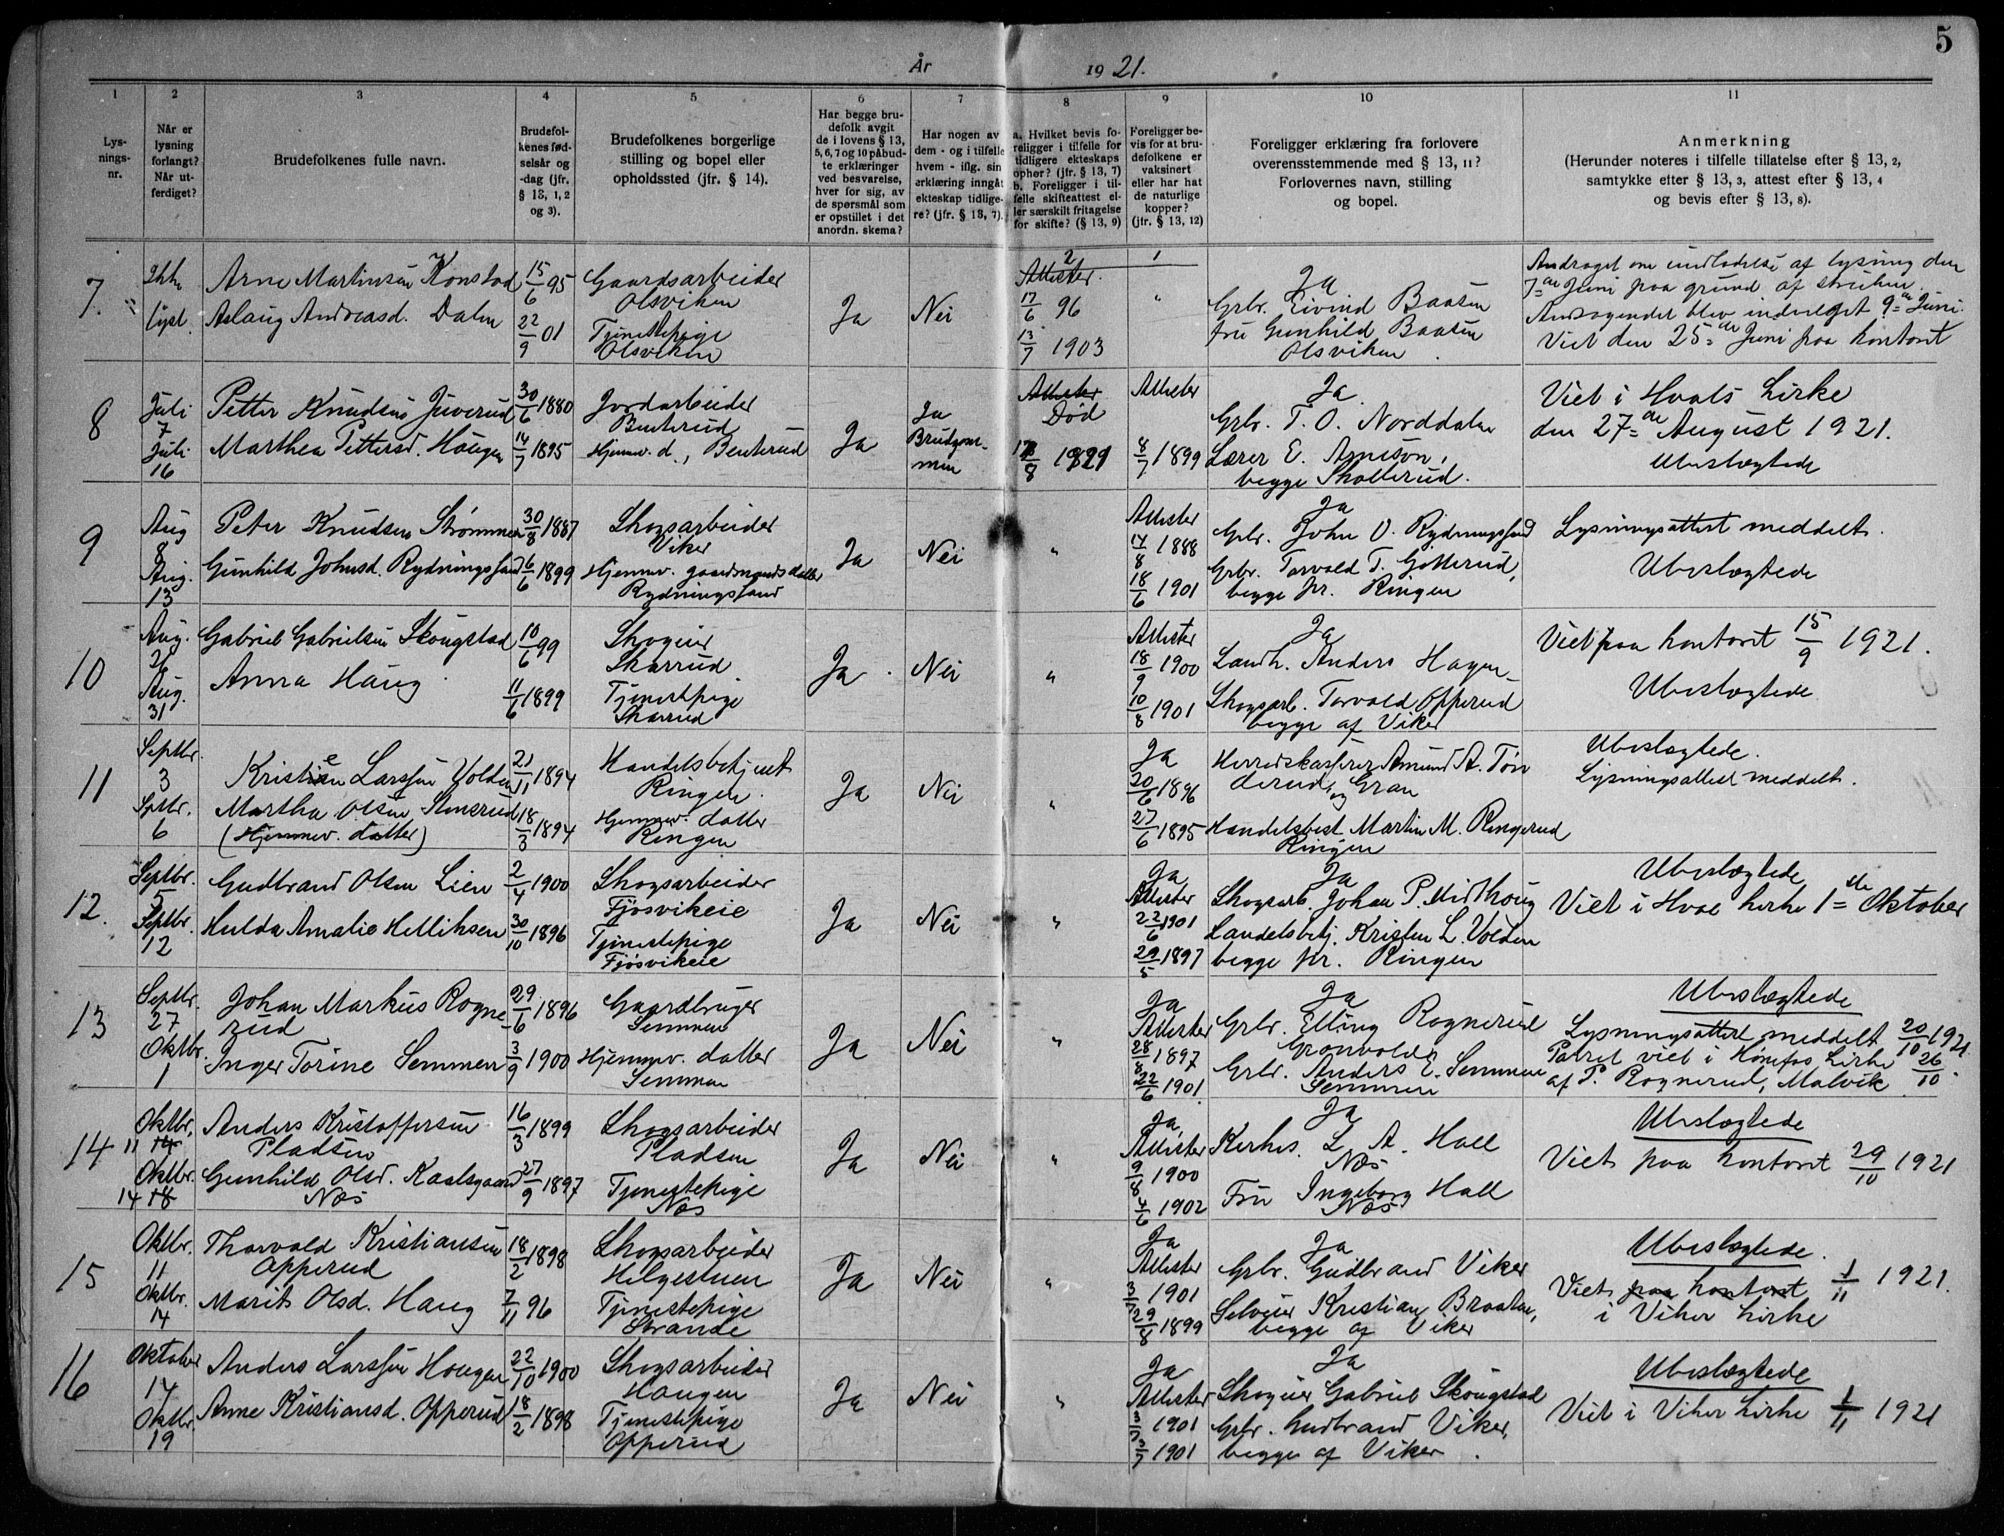 5
År 1921.
1
Lysningsnr.
2
Når er lysning forlangt? Når utferdiget?
3
Brudefolkenes fulle navn.
4
Brudefolkenes fødselsår og -dag (jfr. § 13, 1, 2 og 3).
5
Brudefolkenes borgerlige stilling og bopel eller opholdssted (jfr. § 14).
6
Har begge brudefolk avgit de i lovens § 13, 5, 6, 7 og 10 påbudte erklæringer ved besvarelse, hver for sig, av de spørsmål som er opstillet i det anordn. skema?
7
Har nogen av dem - og i tilfelle hvem - iflg. sin erklæring inngåt ekteskap tidligere? (jfr. § 13, 7).
8
a. Hvilket bevis foreligger i tilfelle for tidligere ekteskaps ophør? (jfr. § 13, 7)
b. Foreligger i tilfelle skifteattest eller særskilt fritagelse for skifte? (§ 13, 9)
9
Foreligger bevis for at brudefolkene er vaksinert eller har hat de naturlige kopper? (jfr. § 13, 12)
10
Foreligger erklæring fra forlovere overensstemmende med § 13, 11? Forlovernes navn, stilling og bopel.
11
Anmerkning
(Herunder noteres i tilfelle tillatelse efter § 13, 2, samtykke efter § 13, 3, attest efter § 13, 4 og bevis efter § 13, 8).
7.
Ikke lyst.
Arne Martinsen Konstad
Aslaug Andreasd. Dalen
15/6 95
22/9 01
Gaardsarbeider
Olsviken
Tjenestepige
Olsviken
Ja
Nei
2 1
Attester.
17/6 96
13/7 1903
"
Ja
Grbr. Eivind Baasen
fru Gunhild Baasen
Olsviken
Andraget om undladelse af lysning den
7de Juni paa grund af streiken.
Andragendet blev indvilget 9de Juni.
Viet den 25de Juni paa kontoret
8
Juli 7
Juli 16
Petter Knudsen Juverud
Marthea Pettersd. Haugen
30/6 1880
14/7 1895
Jordarbeider
Benterud
Hjemmev. d., Benterud
Ja
Ja
Brudgommen
Attester
Død
/8 1921
Attester
8/7 1899
Ja
Grbr. T. O. Norddalen
Lærer E. Arneson,
begge Skollerud.
Viet i Hvals kirke
den 27de August 1921.
Ubeslægtede
9
Aug 8
Aug. 13
Peter Knudsen Strømmen
Gunhild Johnsd. Rydningsland
30/8 1887
6/6 1899
Skogsarbeider
Viker
Hjemmev. gaardmandsdatter
Rydningsland
Ja
Nei
"
Attester
14/8 1888
18/6 1901
Ja
Grbr. John O. Rydningsland
Grbr. Torvald T. Gotterud,
begge pr. Ringen
Lysningsattest meddelt.
Ubeslægtede
10
Aug. 26
Aug. 31
Gabriel Gabrielsen Skougstad
Anna Haug
10/6 99
11/6 1899
Skogeier
Skarrud
Tjenestepige
Skarrud
Ja
Nei
"
Attester
18/9 1900
10/8 1901
Ja
Landh. Anders Hagen
Skogsarb. Torvald Opperud
begge af Viker
Viet paa kontoret 15/9 1921.
Ubeslægtede
11
Septbr. 3
Septbr. 6
Kristen Larssen Volden
Martha Olsen Stensrud
(Hjemmev. datter)
21/11 1894
18/3 1894
Handelsbetjent
Ringen.
Hjemmev. datter
Ringen
Ja
Nei
"
Ja
20/6 1896
27/6 1895
Herredskasserer Amund A. Tønderud, og Gran
Handelsbest. Martin M. Ringerud
Ringen
Ubeslægtede.
Lysningsattest meddelt.
12.
Septbr. 5
Septbr. 12
Gudbrand Olsen Lien
Hulda Amalie Helliksen
2/4 1900
30/10 1896
Skogsarbeider
Fjøsvikeie
Tjenestepige
Fjøsvikeie
Ja
Nei
"
Ja
Attester
22/6 1901
29/5 1897
Ja
Skogsarb. Johan P. Midthoug
Landelsbetj. Kristen L. Volden
begge pr. Ringen
Ubeslægtede
Viet i Hval kirke 1ste Oktober
13
Septbr. 27
Oktbr. 1
Johan Markus Rognerud
Inger Torine Semmen
29/6 1896
3/9 1900
Gaardbruger
Semmen
Hjemmev. datter
Semmen
Ja
Nei
"
Ja
Attester
28/8 1897
22/6 1901
Ja
Grbr. Elling Rognerud
Grønvold
Grbr. Anders E. Semmen
Semmen
Ubeslægtede
Lysningsattest meddelt 20/10 1921
Parret viet i Hønefos kirke 26/10.
af P. Rognerud, Malvik
14
Oktbr. 11 14
Oktbr. 14 18
Anders Kristoffersen
Pladsen
Gunhild Olsd. Kaalsgaard
Næs
16/3 1899
27/9 1897
Skogsarbeider
Pladsen
Tjenestepige
Næs
Ja
Nei
"
Ja,
Attester
9/8 1900
/6 1902
Ja
Kirkes. L. A. Hall
Næs
Fru Ingeborg Hall
Næs
Ubeslægtede
Viet paa kontoret 29/10 1921
15
Oktbr. 11
Oktbr. 14
Thorvald Kristiansen
Opperud
Marit Olsd. Haug
18/2 1898
7/11 96
Skogsarbeider
Helgestuen
Tjenestepige
Strande
Ja
Nei
"
Ja
Attester
1901
9/8 1899
Ja
Grbr. Gudbrand Viker
Selveier Kristian Braaten,
begge af Viker
Ubeslægtede.
Viet paa kontoret 1/11 1921.
i Viker kirke
16
Oktober 14
Oktbr. 19
Anders Larssen Haugen
Anne Kristiansd. Opperud
22/10 1900
18/2 1898
Skogsarbeider
Haugen
Tjenestepige
Opperud
Ja
Nei
"
Ja
Attester
1901
1901
Ja
Skogeier Gabriel Skougstad
Grbr. Gudbrand Viker,
begge af Viker.
Ubeslægtede
Viet i Viker kirke 1/11 1921